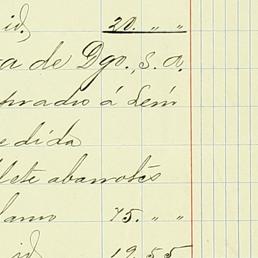 id. 20. " "
a de Dgo., S. A.
prado á Lém
edida
lete abarrotes
lamo 75. " "
id 12.55